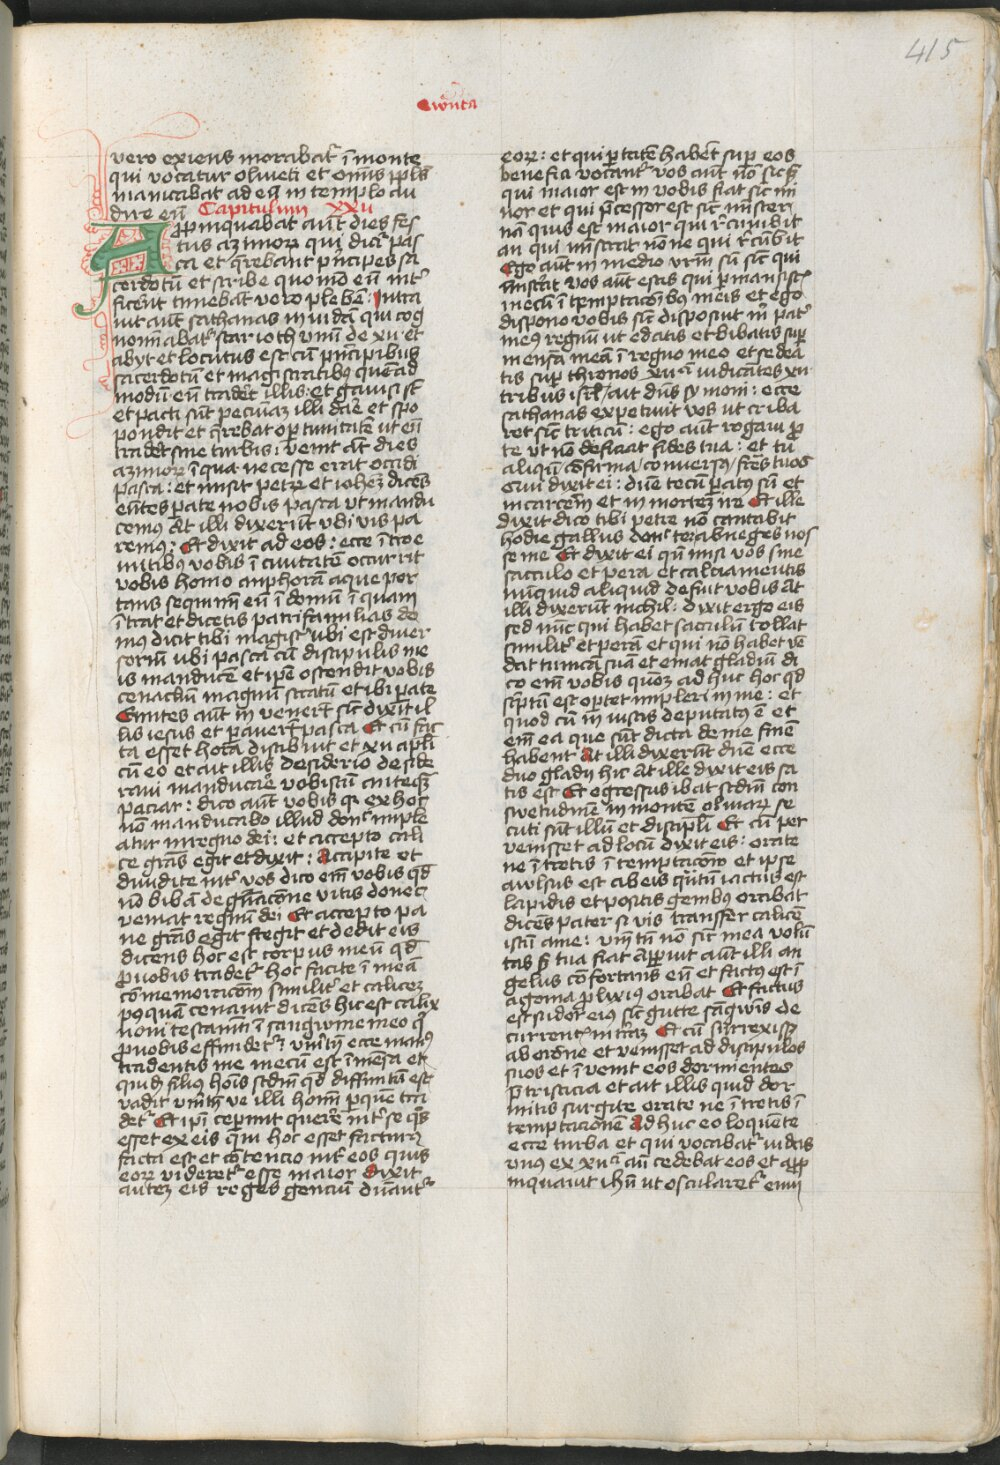 415
vero exiens morabat᷑ ī monte
qui vocatur oliveti et omīs ppl̄s
manicabat ad eū in templo au
dire eū Capitulum xxii
Appinquabat aūt dies fes
tus azimoꝝ qui dicit᷑ pas
ca et q̄rebant p̄ncipes sa
cerdotū et scribe quomō eū int᷑
ficēnt timebāt vero plebē. Intra
uit aūt sathanas in iudā qui cog
nomīabat᷑ scarioth vnū de xii· et
abyt et locutus est cū p̄ncipibus
sacerdotū et magistratibus queād
modū eū tradēt illis· et gauisi sūt
et pacti sūt pecuniaʒ illi dare et spo
pondit et q̄rebat oportunitatē ut eū
tradēt sine turbis: venit aūt dies
azimoꝝ ī qua necesse erat occidi
pasca: et misit petrū et iohēʒ dicēs
eūtes parate nobis pasca vt mandu
cemꝰ At illi dixerūt vbi vis pa
remꝰ: Et dixit ad eos: ecce ītroe
untibꝰ vobis ī ciuitatē occurrit
vobis homo amphorā aque por
tans sequimī eū ī domū ī quam
ītrat et dicetis patrifamilias do
mꝰ dicit tibi magist᷑ ubi est diuer
soriū ubi pasca cū discipulis me
is manducē et ip̄e ostendit vobis
cenaclū magnū stratū et ibi parate
Euntes aūt īvenerūt sic dixit il
lis iesus et paueꝝt pasca Et cū fac
ta esset hora discubuit et xii apl̄i
cū eo et ait illis desiderio deside
raui manducare vobiscū anteq̄ʒ
paciar: dico aūt vobis qꝛ ex hoc
nō manducabo illud donec imple
atur in regno dei: et accepto cali
ce grās egit et dixit: Accipite et
diuidite int᷑ vos dico em̄ vobis qd̄
nō bibā de gn̄acōne vitis donec
veniat regnū dei Et accepto pa
ne grās egit fregit et dedit eis
dicens hoc est corpus meū qd̄
pro vobis tradet᷑ hoc facite ī meā
cōmemoracōm similit᷑ et caliceʒ
pꝰquam cenauit dicēs hic est calix
noui testamēti ī sanguine meo q̄
pro vobis effundet᷑: vm̄tn̄ ecce manꝰ
tradentis me mecū est ī mēsa et
quidē filiꝰ hoīs scdm̄ qd̄ diffinitū est
vadit vm̄tn̄ ve illi homī per quem tra
det᷑ Et ip̄i ceperūt querere int᷑ se q̄s
esset ex eis q̄ui hoc esset facturꝰ
facta est et cōtencio int᷑ eos quis
eoꝝ videret᷑ esse maior Dixit
auteʒ eis reges genciū dn̄ant᷑
eoꝝ: et qui ptatē habēt sup eos
benefici vocant᷑ vos aūt nō sic sʒ
qui maior est in vobis fiat sic mi
nor et qui p̄cessor est sic mīstrator
nā quis est maior qui r̄cumbit
an qui mīstrat nōne qui r̄cūbit
Ego aūt in medio vr̄m sū sic qui
mīstrat vos aūt estis qui permansistis
mecū ī temptacōibꝰ meis et ego
dispono vobis sic disposuit m̄ pat᷑
meꝰ regnū ut edatis et bibatis sup
mensā meā ī regno meo et sedea
tis sup thronos xii· iudicātes xii·
tribus isrl̄ ait dn̄s symoni: ecce
sathanas expetiuit vos ut criba
ret sic triticū: ego aūt rogaui pro
te ut nō deficiat fides tua: et tu
aliqn̄ cōfirma conuersꝰ fr̄es tuos
Qui dixit ei: dn̄e tecū paratꝰ sū et
in carcerē et in morteʒ ire Et ille
dixit dico tibi petre nō cantabit
hodie gallus donec ter abneges nos
se me Et dixit ei qn̄ misi vos sine
sacculo et pera et calciamentis
nūquid aliquid defuit vobis At
illi dixerūt nichil: dixit ergo eis
sed nūc qui habet sacculum tollat
similit᷑ et perā et qui nō habet vē
dat tunicā suā et emat gladiū di
co em̄ vobis quoniaʒ adhuc hoc qd̄
sc̄ptū est optet impleri in me: et
quod cū iniustis deputatꝰ ē et
em̄ ea que sūt dicta de me finē
habent At illi dixerūt dn̄e ecce
duo gladij hic At ille dixit eis sa
tis est Et egressus ibat scdm̄ con
swetudinē in montē oliuaꝝ se
cuti sūt illū et discipl̄i Et cū per
venisset ad locū dixit eis: orate
ne ītretis ī temptacōm et ipse
awlsus est ab eis q̄ntū iactus est
lapidis et positis genibus orabat
dicēs pater si vis transfer calicē
istū a me: vm̄tn̄ nō sic mea volū
tas sʒ tua fiat apparuit aūt illi an
gelus cōfortans eū et factꝰ est ī
agonia prolixiꝰ orabat Et factus
est sudor eiꝰ sic gutte sāgwīs de
currentis in t᷑raʒ Et cū surrexisset
ab or̄one et venisset ad discipulos
suos et īvenit eos dormientes
p̄ tristicia et ait illis quid dor
mitis surgite orate ne ītretis ī
temptacionē Adhuc eo loquēte
ecce turba et qui vocabat᷑ iudas
vnꝰ ex xii· an̄cedebat eos et app̄
inquauit ih̄u ut oscularet᷑ eum